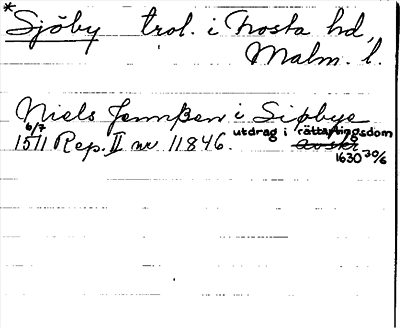 *Sjöby trol. i Frosta hd,
Malm. l.
Niels Jennßen i Siøbye
6/7 1511 Rep. II nr 11846. utdrag i rättartingsdom
avskr
1630 30/6